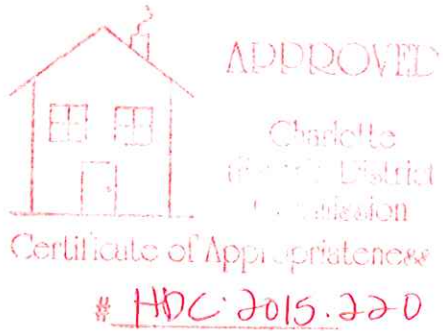 APPROVED
Charlotte
District
Commission
Certificate of Appropriateness
# HDC.2015.220